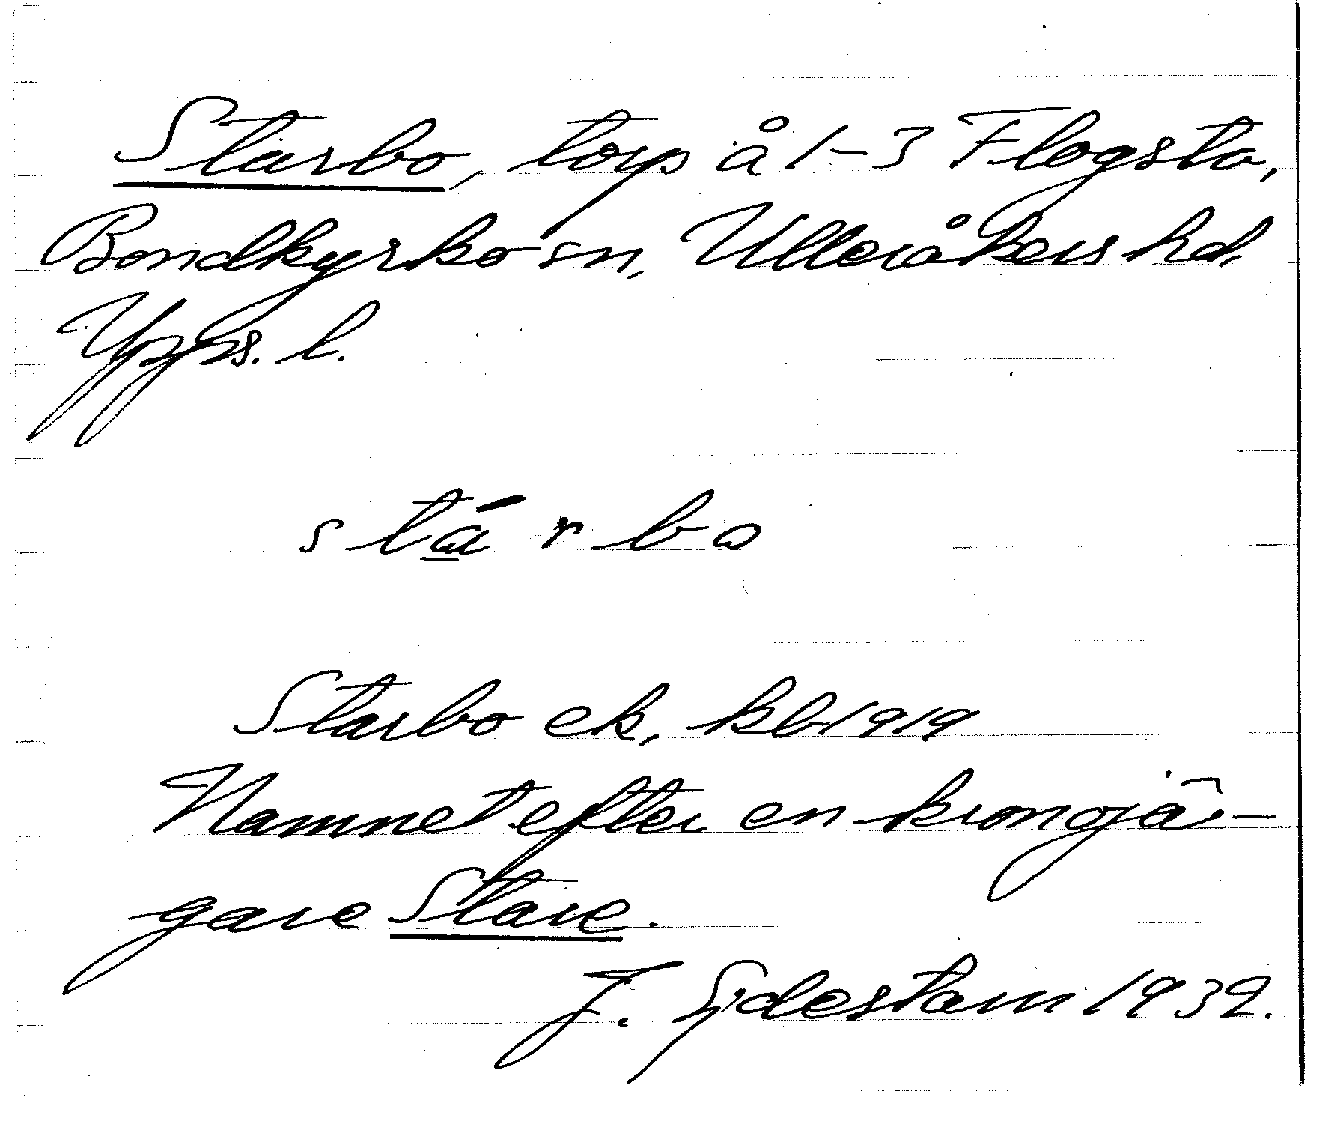 Starbo, torp å 1-3 Flogsta,
Bondkyrko sn, Ulleråkers hd,
Upps. l.
stárbo
Starbo ek, kb 1919
Namnet efter en kronojä-
gare Stare.
F. Sjdestam 1932.